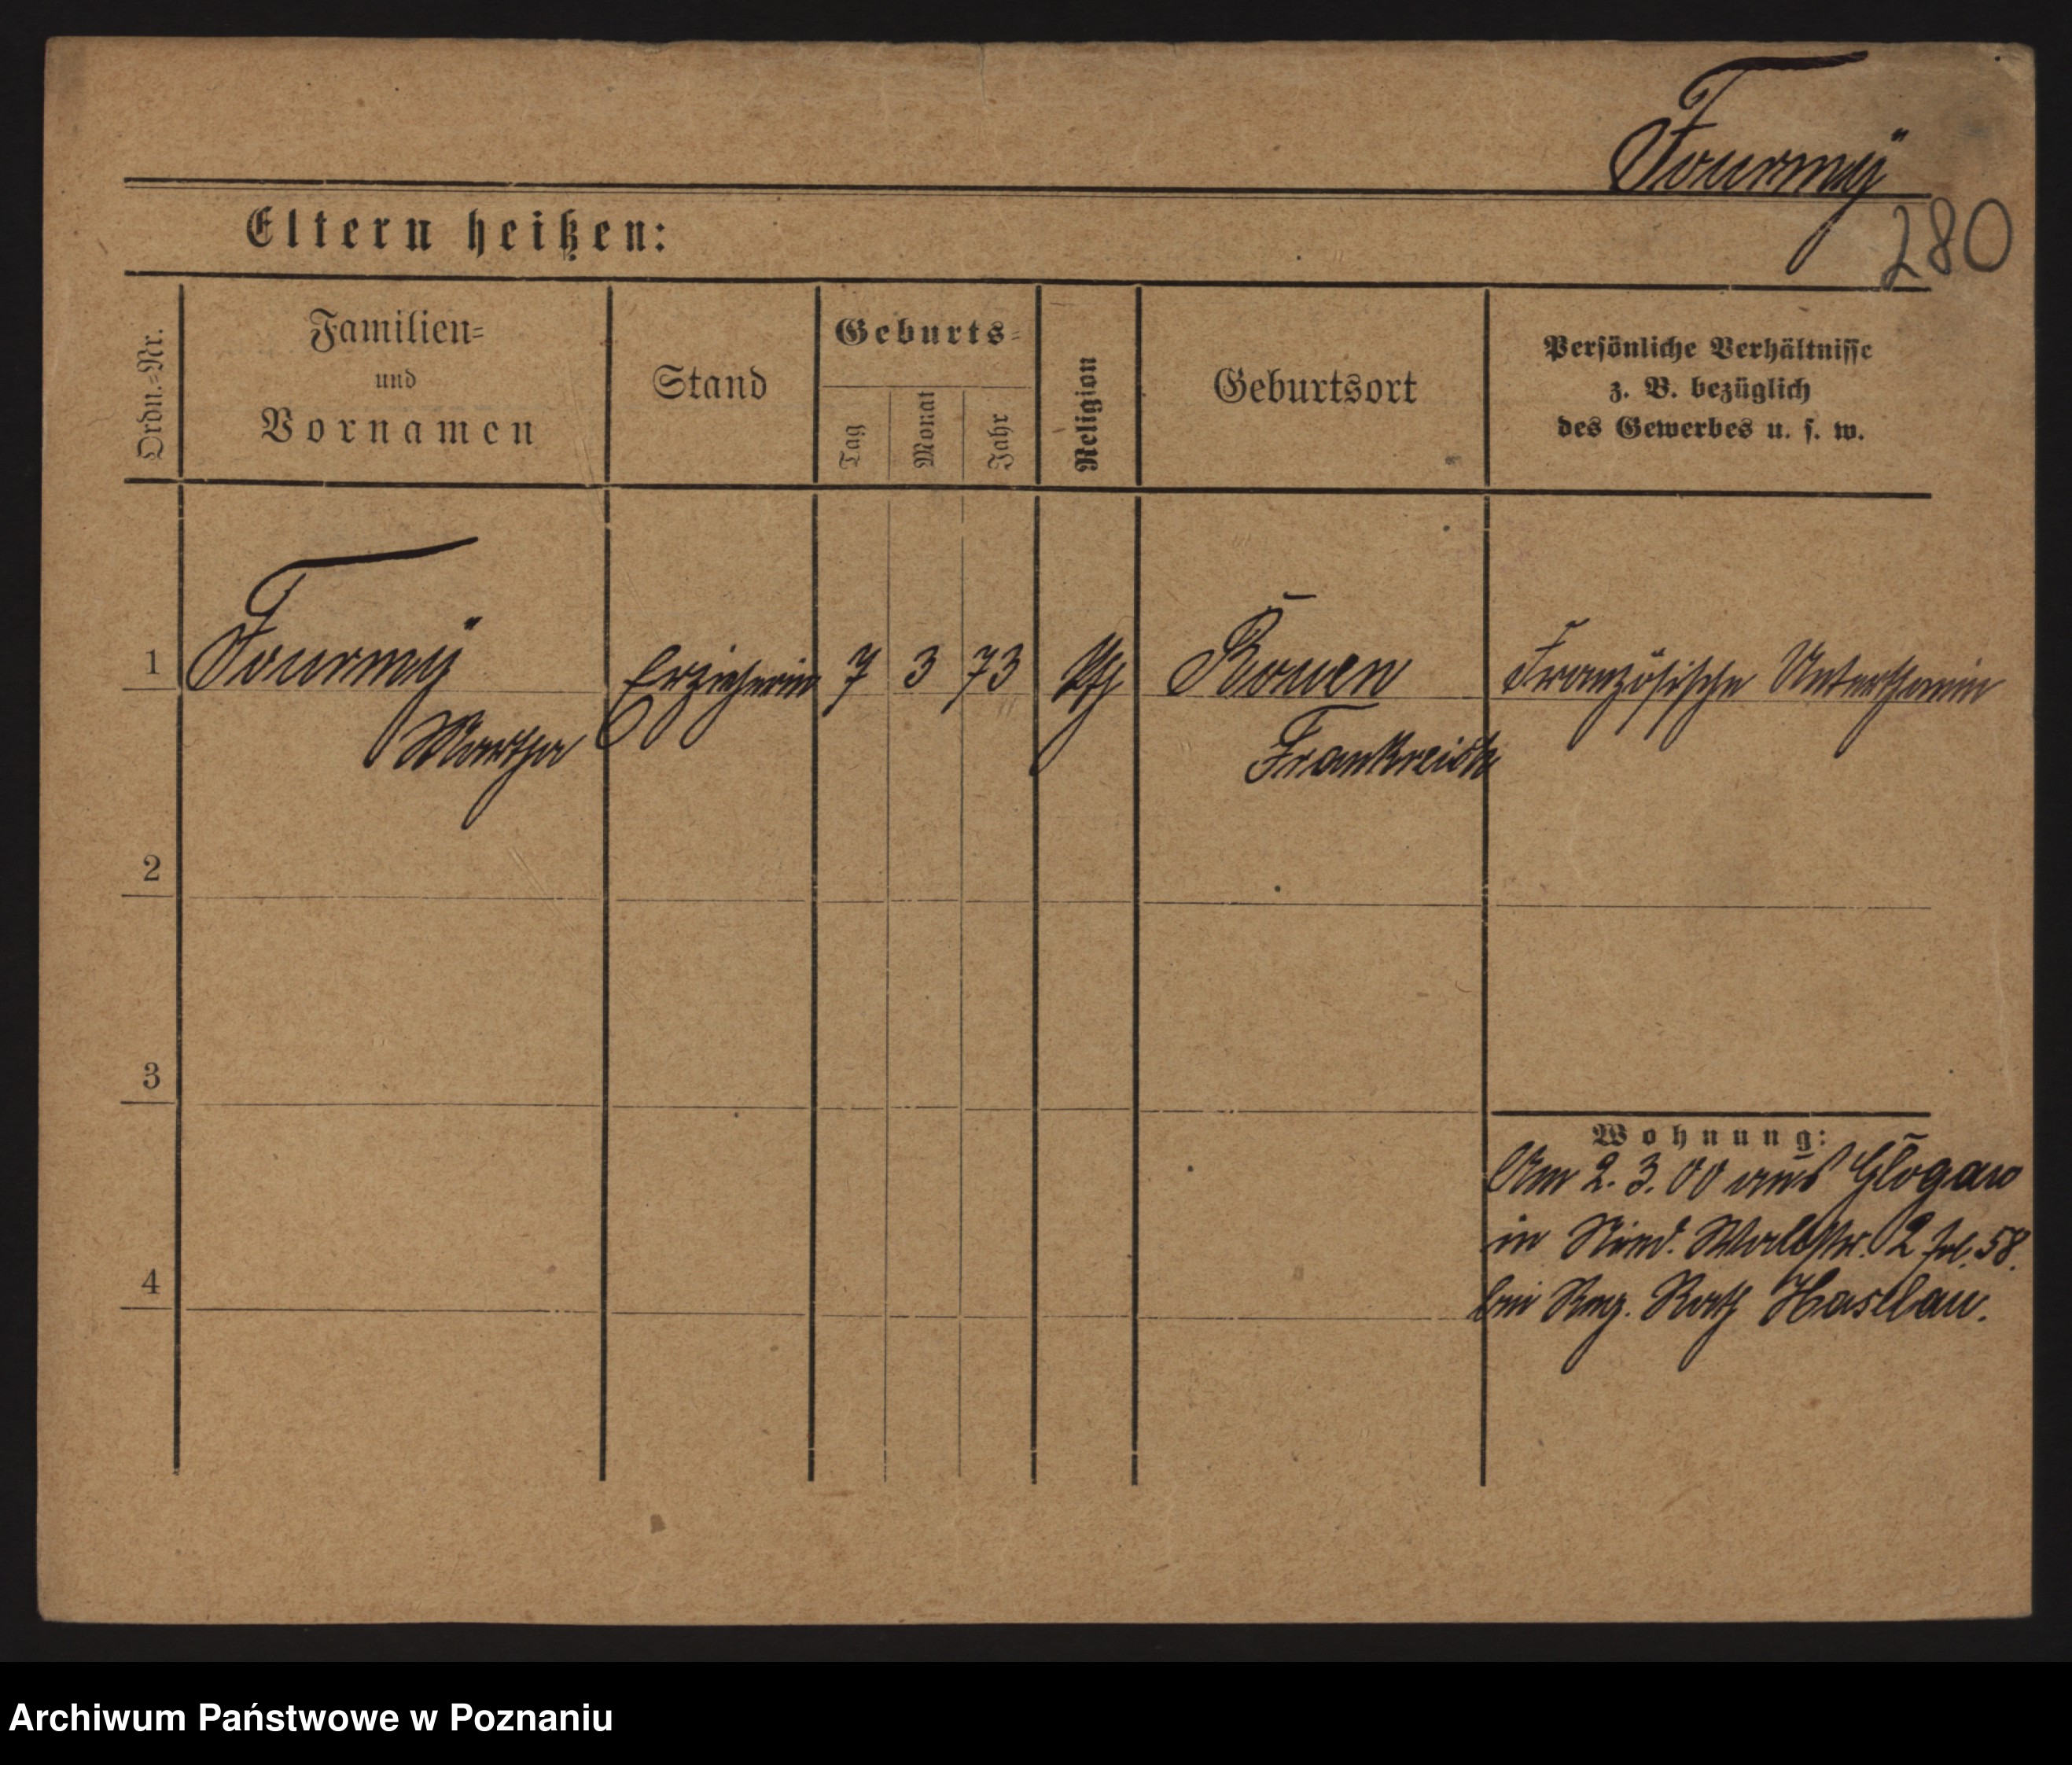 Fourmÿ
280
Eltern heißen:
Ordn.=Nr.
Familien=
und
Vornamen
Stand
Geburts=
Tag
Monat
Jahr
Religion
Geburtsort
Persönliche Verhältnisse
z. B. bezüglich
des Gewerbes u. s. w.
1
Fourmÿ
Martha
Erzieherin
7
3
73
Rouen
Frankreich
Französische Unterthanin
2
3
4
Wohnung:
Am 2. 3. 00 aus Glogau
in Nied. Wallstr. 2 58.
bei Reg. Rath Haselau.
Archiwum Państwowe w Poznaniu